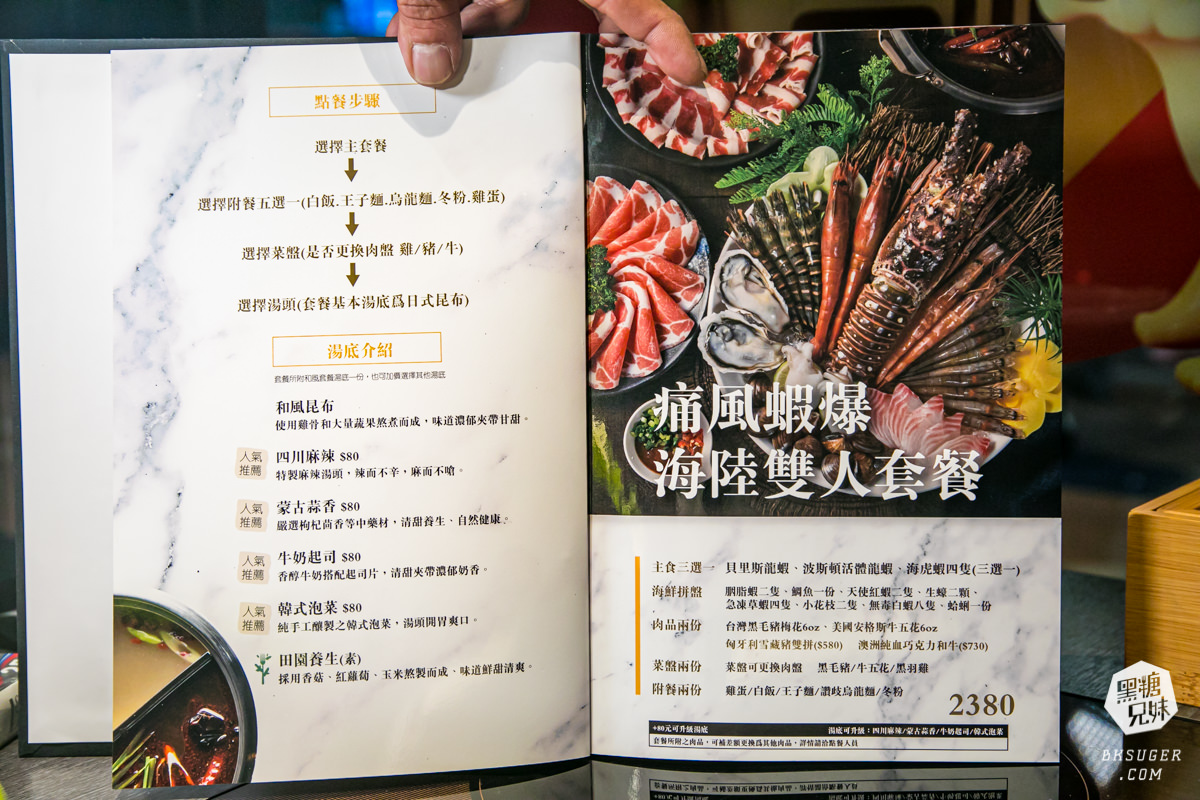 點餐步驟
選擇主套餐
選擇附餐五選一(白飯.王子麵.烏龍麵.冬粉.雞蛋)
選擇菜盤(是否更換肉盤 雞/豬/牛)
選擇湯頭(套餐基本湯底爲日式昆布)
湯底介紹
套餐所附和風套餐湯底一份，也可加價選擇其他湯底
和風昆布
使用雞骨和大量蔬果熬煮而成，味道濃郁夾帶甘甜。
人氣推薦
四川麻辣 $80
特製麻辣湯頭，辣而不辛，麻而不嗆。
人氣推薦
蒙古蒜香 $80
嚴選枸杞茴香等中藥材，清甜養生、自然健康。
人氣推薦
牛奶起司 $80
香醇牛奶搭配起司片，清甜夾帶濃郁奶香。
人氣推薦
韓式泡菜 $80
純手工釀製之韓式泡菜，湯頭開胃爽口。
田園養生(素)
採用香菇、紅蘿蔔、玉米熬製而成、味道鮮甜清爽。
痛風蝦爆
海陸雙人套餐
主食三選一 貝里斯龍蝦、波斯頓活體龍蝦、海虎蝦四隻(三選一)
海鮮拼盤 胭脂蝦二隻、鯛魚一份、天使紅蝦二隻、生蠔二顆、
急凍草蝦四隻、小花枝二隻、無毒白蝦八隻、蛤蜊一份
肉品兩份 台灣黑毛豬梅花6oz、美國安格斯牛五花6oz
匈牙利雪藏豬雙拼($580) 澳洲純血巧克力和牛($730)
菜盤兩份 菜盤可更換肉盤 黑毛豬/牛五花/黑羽雞
附餐兩份 雞蛋/白飯/王子麵/讚岐烏龍麵/冬粉
2380
+80元可升級湯底 湯底可升級：四川麻辣/蒙古蒜香/牛奶起司/韓式泡菜
套餐所附之肉品，可補差額更換爲其他肉品，詳情請洽點餐人員
黑糖兄妹
BKSUGER
.COM